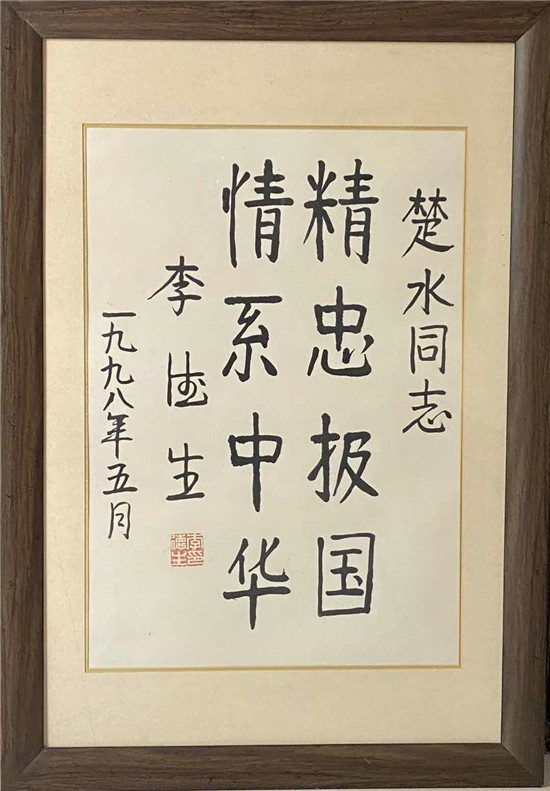 楚水同志
精忠报国
情系中华
李德生
一九九八年五月
李德生印